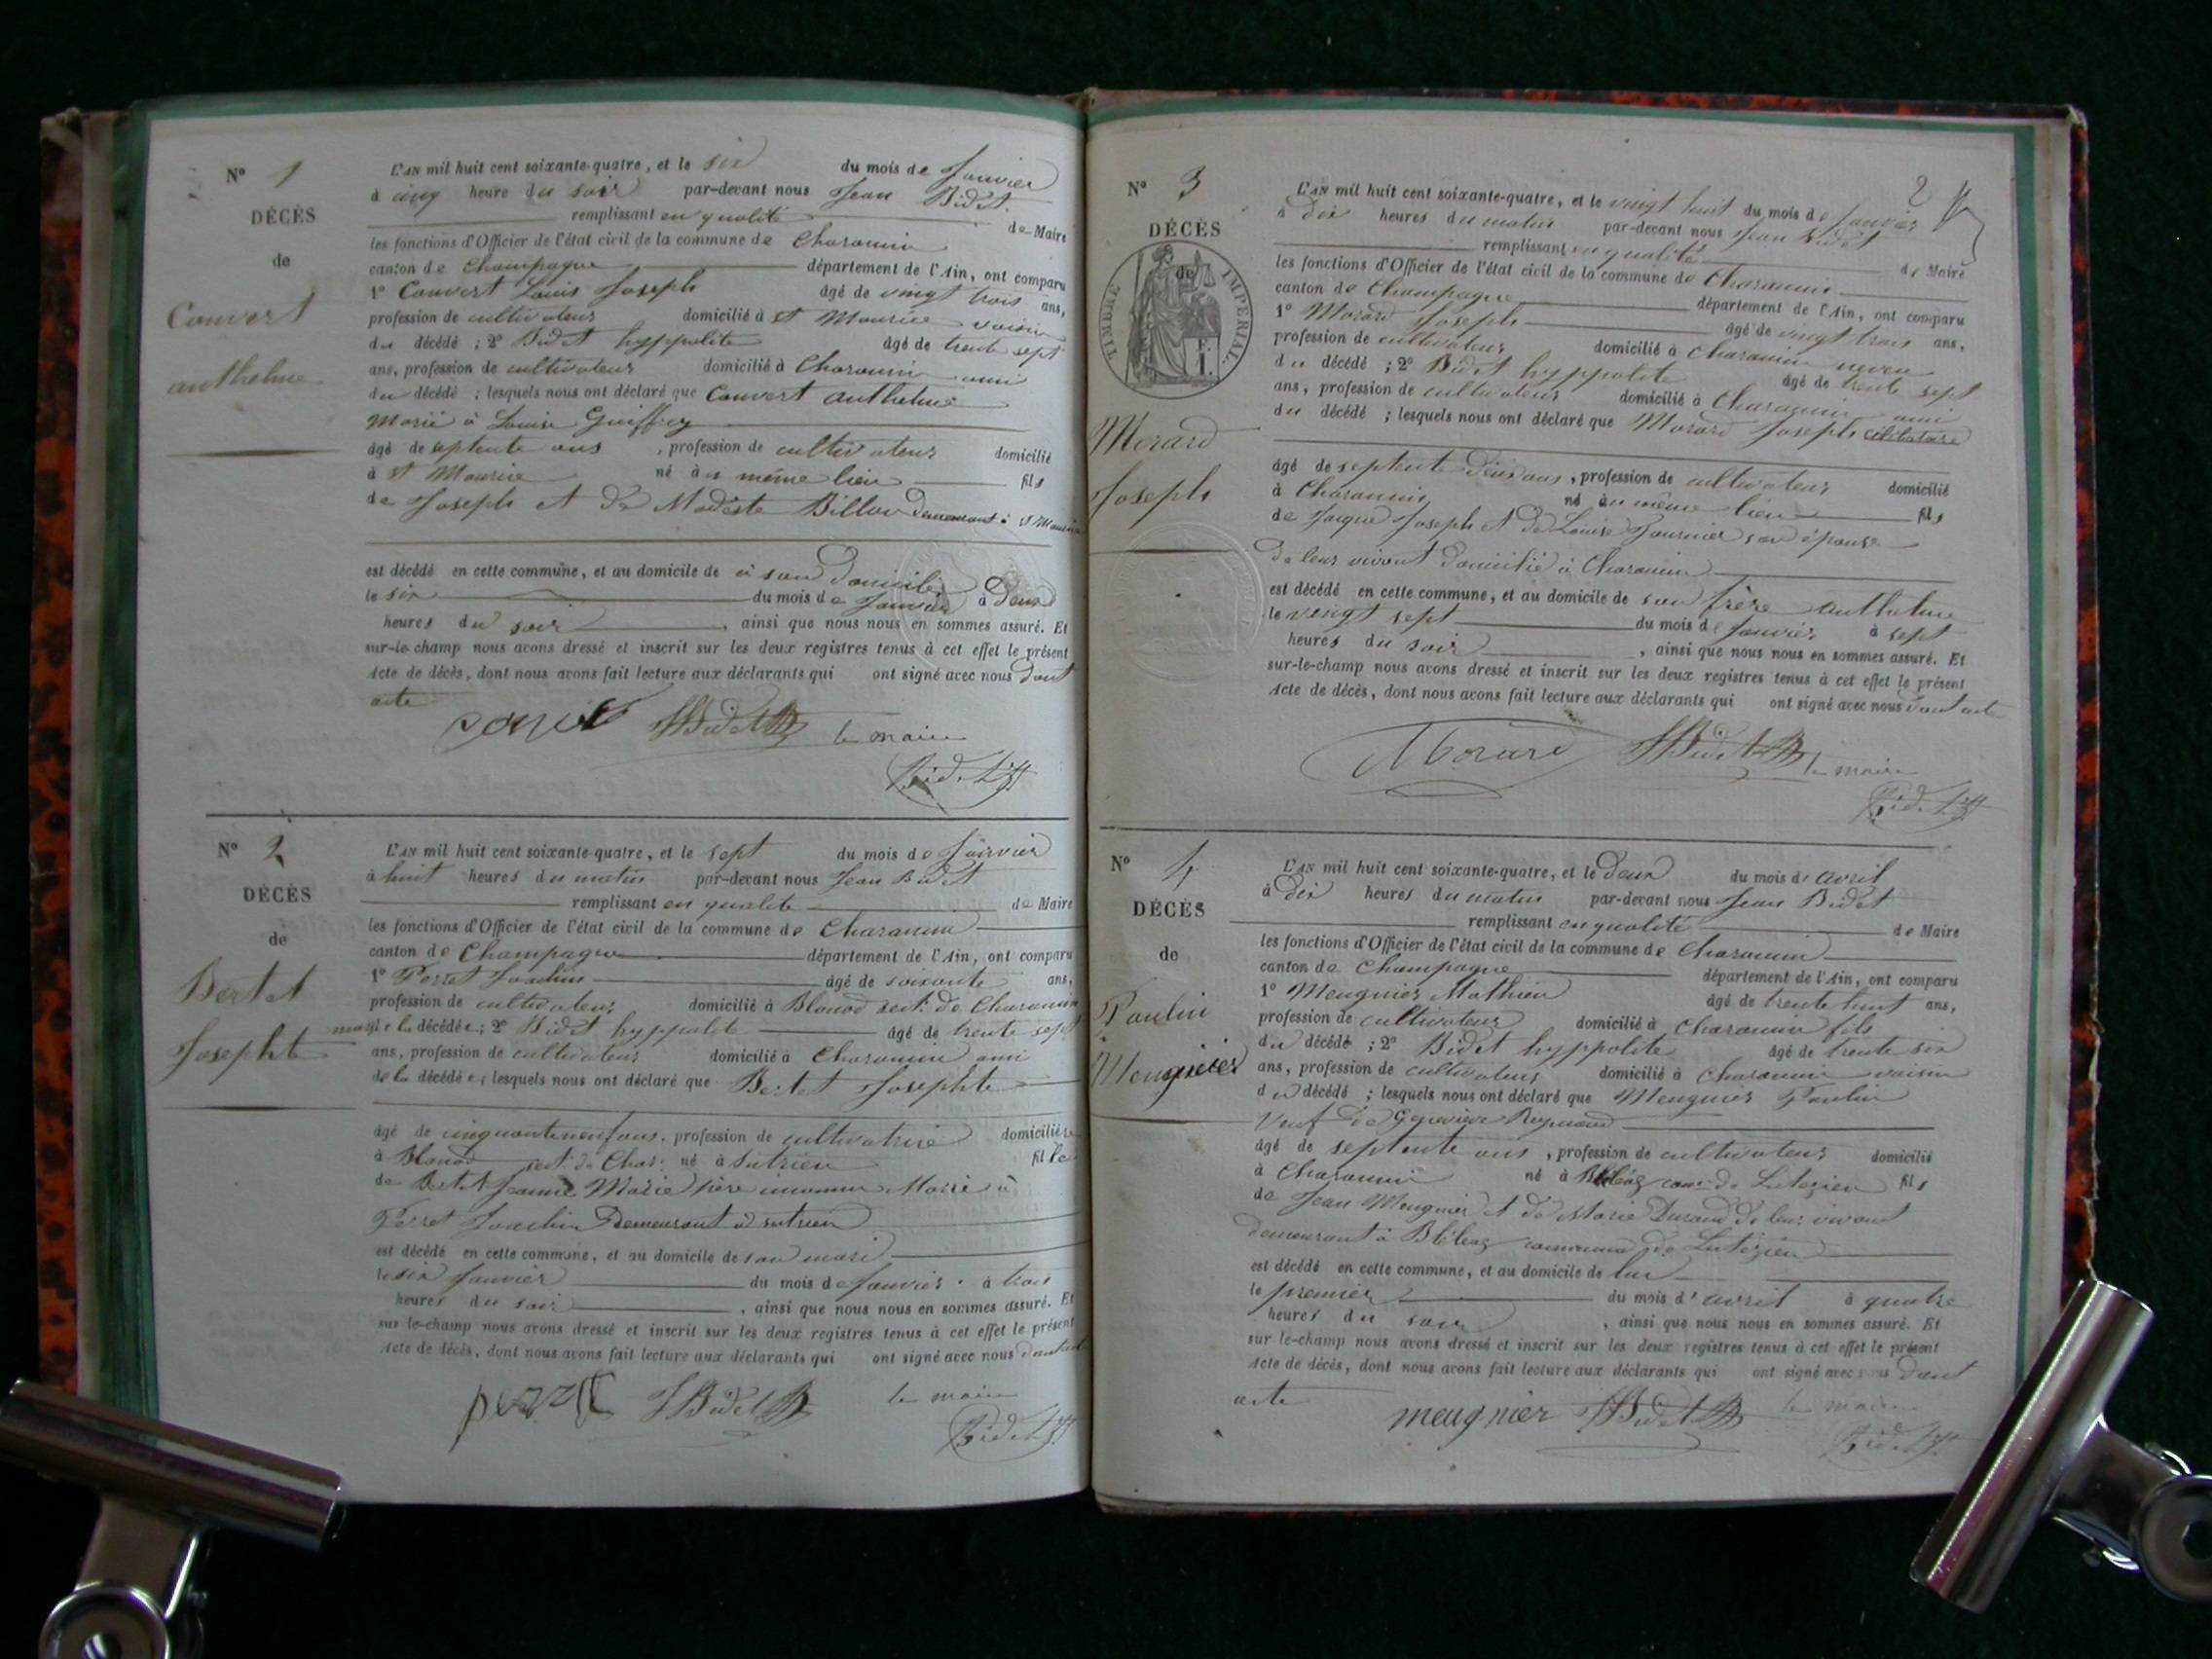 N° 1
DÉCÈS
de
Convert
anthelme
L'AN mil huit cent soixante-quatre, et le six du mois de Janvier
à cinq heure du soir par-devant nous Jean Bidet
remplissant en qualité de Maire
les fonctions d'Officier de l'état civil de la commune de Charancin
canton de Champagne département de l'Ain, ont comparu
1° Convert Louis Joseph âgé de vingt trois ans,
profession de cultivateur domicilié à St Maurice voisin
du décédé ; 2° Bidet hyppolite âgé de trente sept
ans, profession de cultivateur domicilié à Charancin ami
du décédé ; lesquels nous ont déclaré que Convert anthelme
Marié à Louise Guiffrey
âgé de septente ans , profession de cultivateur domicilié
à St Maurice né au même lieu fils
de Joseph et de Modeste Billon demeurant à St Maurice
est décédé en cette commune, et au domicile de à son Domicile
le six du mois de Janvier à Deux
heures du soir , ainsi que nous nous en sommes assuré. Et
sur-le-champ nous avons dressé et inscrit sur les deux registres tenus à cet effet le présent
Acte de décès, dont nous avons fait lecture aux déclarants qui ont signé avec nous Dont
acte
HBidet le maire
Bidet
N° 2
DÉCÈS
de
Bertet
Josephte
L'AN mil huit cent soixante-quatre, et le sept du mois de Janvier
à huit heures du matin par-devant nous Jean Bidet
remplissant en qualité de Maire
les fonctions d'Officier de l'état civil de la commune de Charancin
canton de Champagne département de l'Ain, ont comparu
1° Perret Joachin âgé de soixante ans,
profession de cultivateur domicilié à Blanod sect. de Charancin
mari de la décédée; 2° Bidet hyppolite âgé de trente sept
ans, profession de cultivateur domicilié à Charancin ami
de la décédée; lesquels nous ont déclaré que Bertet Josephte
âgé de cinquante neuf ans, profession de cultivatrice domiciliée
à Blanod sect. de Char. né à Sutrieu fille
de Bertet Jeanne Marie père inconnu Marié à
Perret Joachin Demeurant à sutrieu
est décédé en cette commune, et au domicile de son mari
le six Janvier du mois de Janvier à trois
heures du soir , ainsi que nous nous en sommes assuré. Et
sur-le-champ nous avons dressé et inscrit sur les deux registres tenus à cet effet le présent
Acte de décès, dont nous avons fait lecture aux déclarants qui ont signé avec nous Dont acte
perret HBidet le maire
Bidet
2
N° 3
DÉCÈS
de
TIMBRE IMPERIAL
F.
1.
Morard
Joseph
L'AN mil huit cent soixante-quatre, et le vingt huit du mois de Janvier
à dix heures du matin par-devant nous Jean Bidet
remplissant en qualité de Maire
les fonctions d'Officier de l'état civil de la commune de Charancin
canton de Champagne département de l'Ain, ont comparu
1° Morard Joseph âgé de vingt trois ans,
profession de cultivateur domicilié à Charancin neveu
du décédé ; 2° Bidet hyppolite âgé de trente sept
ans, profession de cultivateur domicilié à Charancin ami
du décédé ; lesquels nous ont déclaré que Morard Joseph célibataire
âgé de septente Deux ans, profession de cultivateur domicilié
à Charancin né au même lieu fils
de Jacque Joseph et de Louise Fournier son épouse
de leur vivant domicilié à Charancin
est décédé en cette commune, et au domicile de son frère anthelme
le vingt sept du mois de Janvier à sept
heures du soir , ainsi que nous nous en sommes assuré. Et
sur-le-champ nous avons dressé et inscrit sur les deux registres tenus à cet effet le présent
Acte de décès, dont nous avons fait lecture aux déclarants qui ont signé avec nous Dont acte
Morard HBidet le maire
Bidet
N° 4
DÉCÈS
de
Paulin
Meugnier
L'AN mil huit cent soixante-quatre, et le Deux du mois d'avril
à Dix heures du matin par-devant nous Jean Bidet
remplissant en qualité de Maire
les fonctions d'Officier de l'état civil de la commune de Charancin
canton de Champagne département de l'Ain, ont comparu
1° Meugnier Mathieu âgé de trente huit ans,
profession de cultivateur domicilié à Charancin fils
du décédé ; 2° Bidet hyppolite âgé de trente six
ans, profession de cultivateur domicilié à Charancin voisin
du décédé ; lesquels nous ont déclaré que Meugnier Paulin
Veuf de Genevieve Reynaud
âgé de septente ans , profession de cultivateur domicilié
à Charancin né à Bléléaz com. de Lutézieu fils
de Jean Meugnier et de Marie Durand de leur vivant
demeurant à Bléléaz commune de Lutézieu
est décédé en cette commune, et au domicile de lui
le premier du mois d'avril à quatre
heures du soir , ainsi que nous nous en sommes assuré. Et
sur-le-champ nous avons dressé et inscrit sur les deux registres tenus à cet effet le présent
Acte de décès, dont nous avons fait lecture aux déclarants qui ont signé avec nous Dont
acte
meugnier HBidet le maire
Bidet